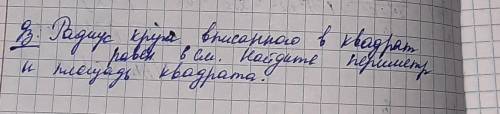 Дз. Радиус круга вписанного в квадрат
равен 8 см. Найдите периметр
и площадь квадрата.